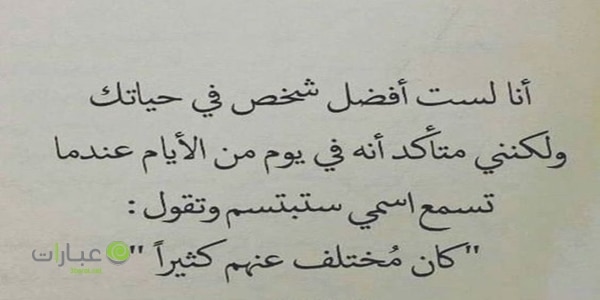 أنا لست أفضل شخص في حياتك
ولكنني متأكد أنه في يوم من الأيام عندما
تسمع اسمي ستبتسم وتقول :
"كان مُختلف عنهم كثيراً "
عبارات